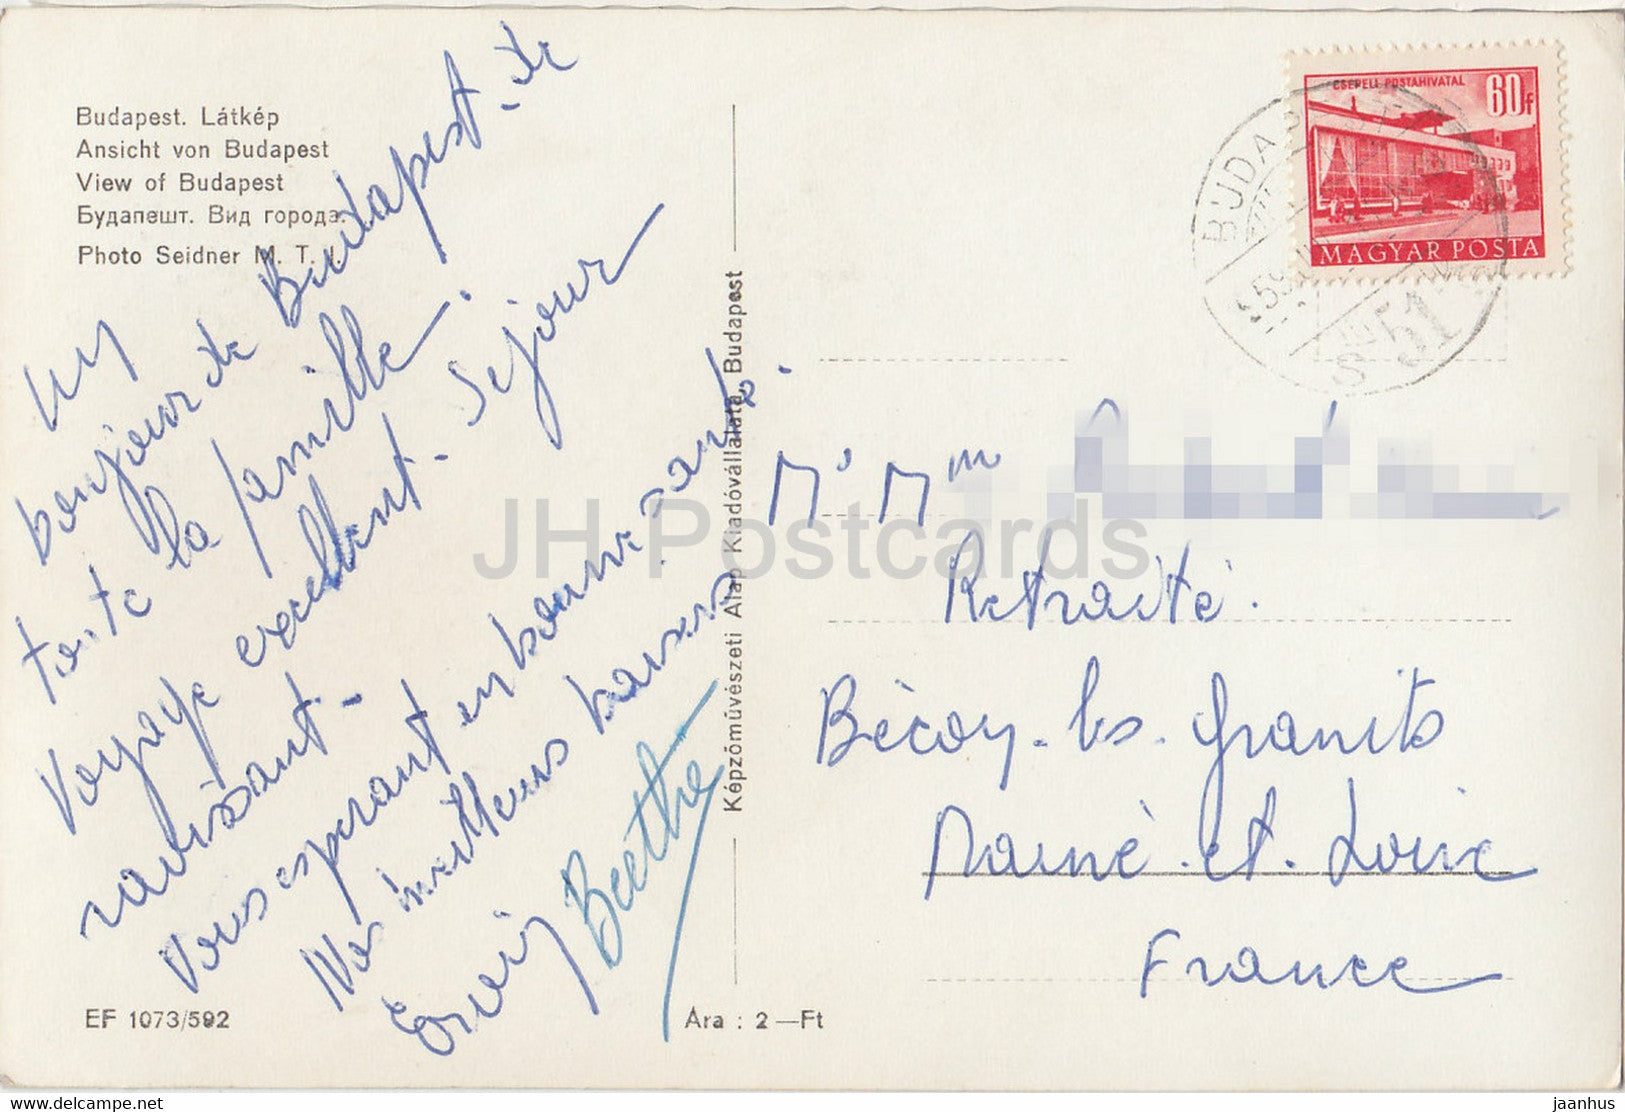 Budapest. Látkép
Ansicht von Budapest
View of Budapest
Будапешт. Вид города.
Photo Seidner M. T. I.
Un
bonjour de Budapest. de
toute la famille.
Voyage excellent. Séjour
ravissant.
Vous espérant en bonne santé.
Nos meilleurs baisers
Berthe
EF 1073/592
Ára : 2 —Ft
Képzőművészeti Alap Kiadóvállalata, Budapest
CSEPELI POSTAHIVATAL
60f
MAGYAR POSTA
BUDAP
59
51
M. Mm
Retraité.
Bécon. les. Granits
Maine. et. Loire
France
JH Postcards
www.delcampe.net
jaanhus